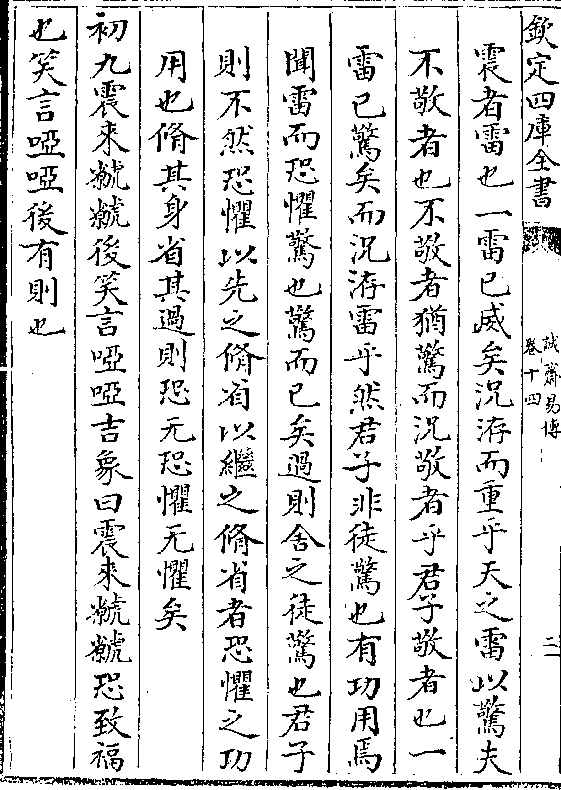 欽定四庫全書
誠齋易傳
卷十四
二
震者雷也一雷已威矣況洊而重乎天之雷以驚夫
不敬者也不敬者猶驚而況敬者乎君子敬者也一
雷已驚矣而況洊雷乎然君子非徒驚也有功用焉
聞雷而恐懼驚也驚而已矣過則舍之徒驚也君子
則不然恐懼以先之脩省以繼之脩省者恐懼之功
用也脩其身省其過則恐无恐懼无懼矣
初九震來虩虩後笑言啞啞吉象曰震來虩虩恐致福
也笑言啞啞後有則也